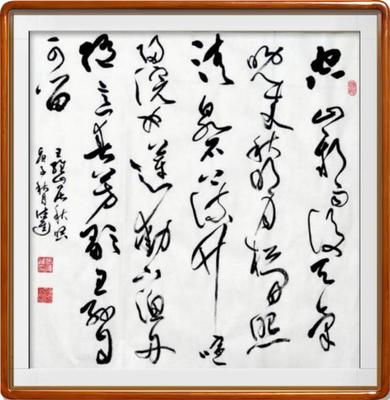 空山新雨後天氣
晚来秋明月松间照
清泉石上流竹喧
归浣女莲动下渔舟
随意春芳歇王孙自
可留
王维山居秋暝
庚子秋月